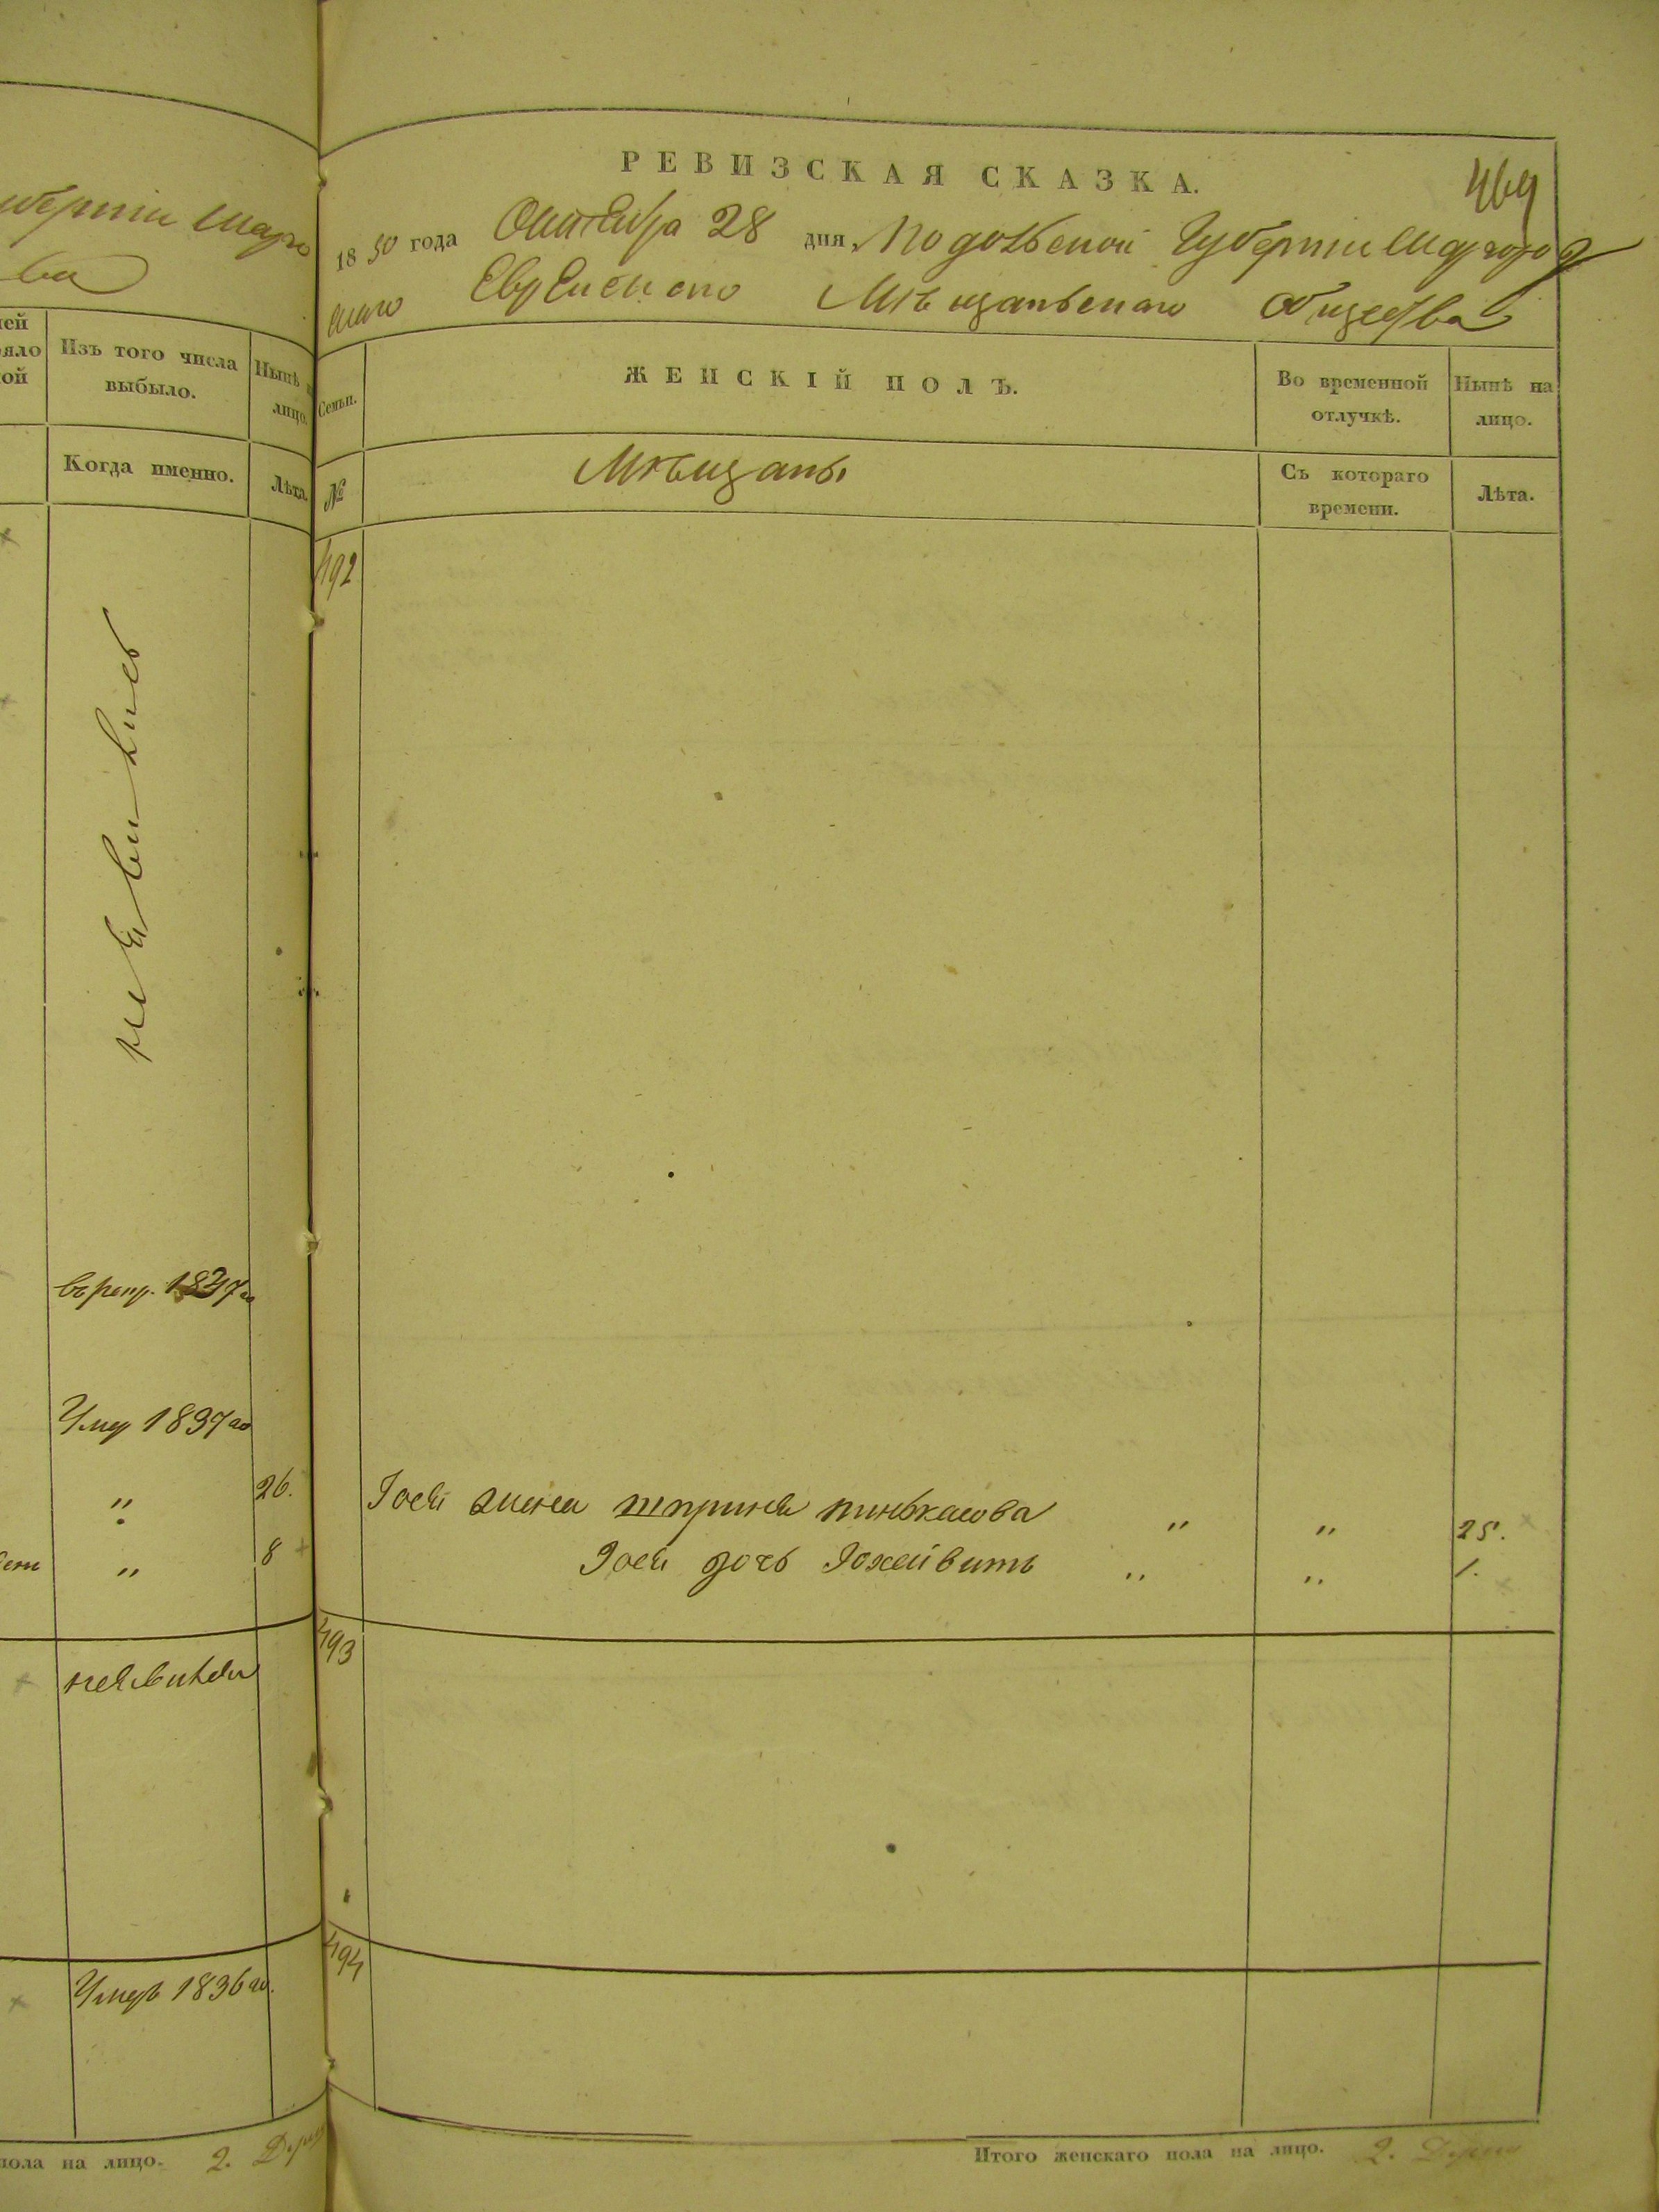 уберніи Шарго
ва
ней
яло
ой
Изъ того числа
выбыло.
Нынѣ на
лицо.
Когда именно.
Лѣта.
неявились
въ рекр. 1847 го
Умер 1837 го
" 26.
" 8
неявился
Умеръ 1836 го.
пола на лицо. 2.
РЕВИЗСКАЯ СКАЗКА.
469
1850 года Октября 28 дня. Подольской Губерніи Шаргород
скаго Еврейскаго Мѣщанскаго Общества
Семьи.
ЖЕНСКІЙ ПОЛЪ.
Во временной
отлучкѣ.
Нынѣ на
лицо.
№
Мѣщаны
Съ котораго
времени.
Лѣта.
492
жена Пинькасова " " 25.
дочь " " 1.
493
494
Итого женскаго пола на лицо. 2.